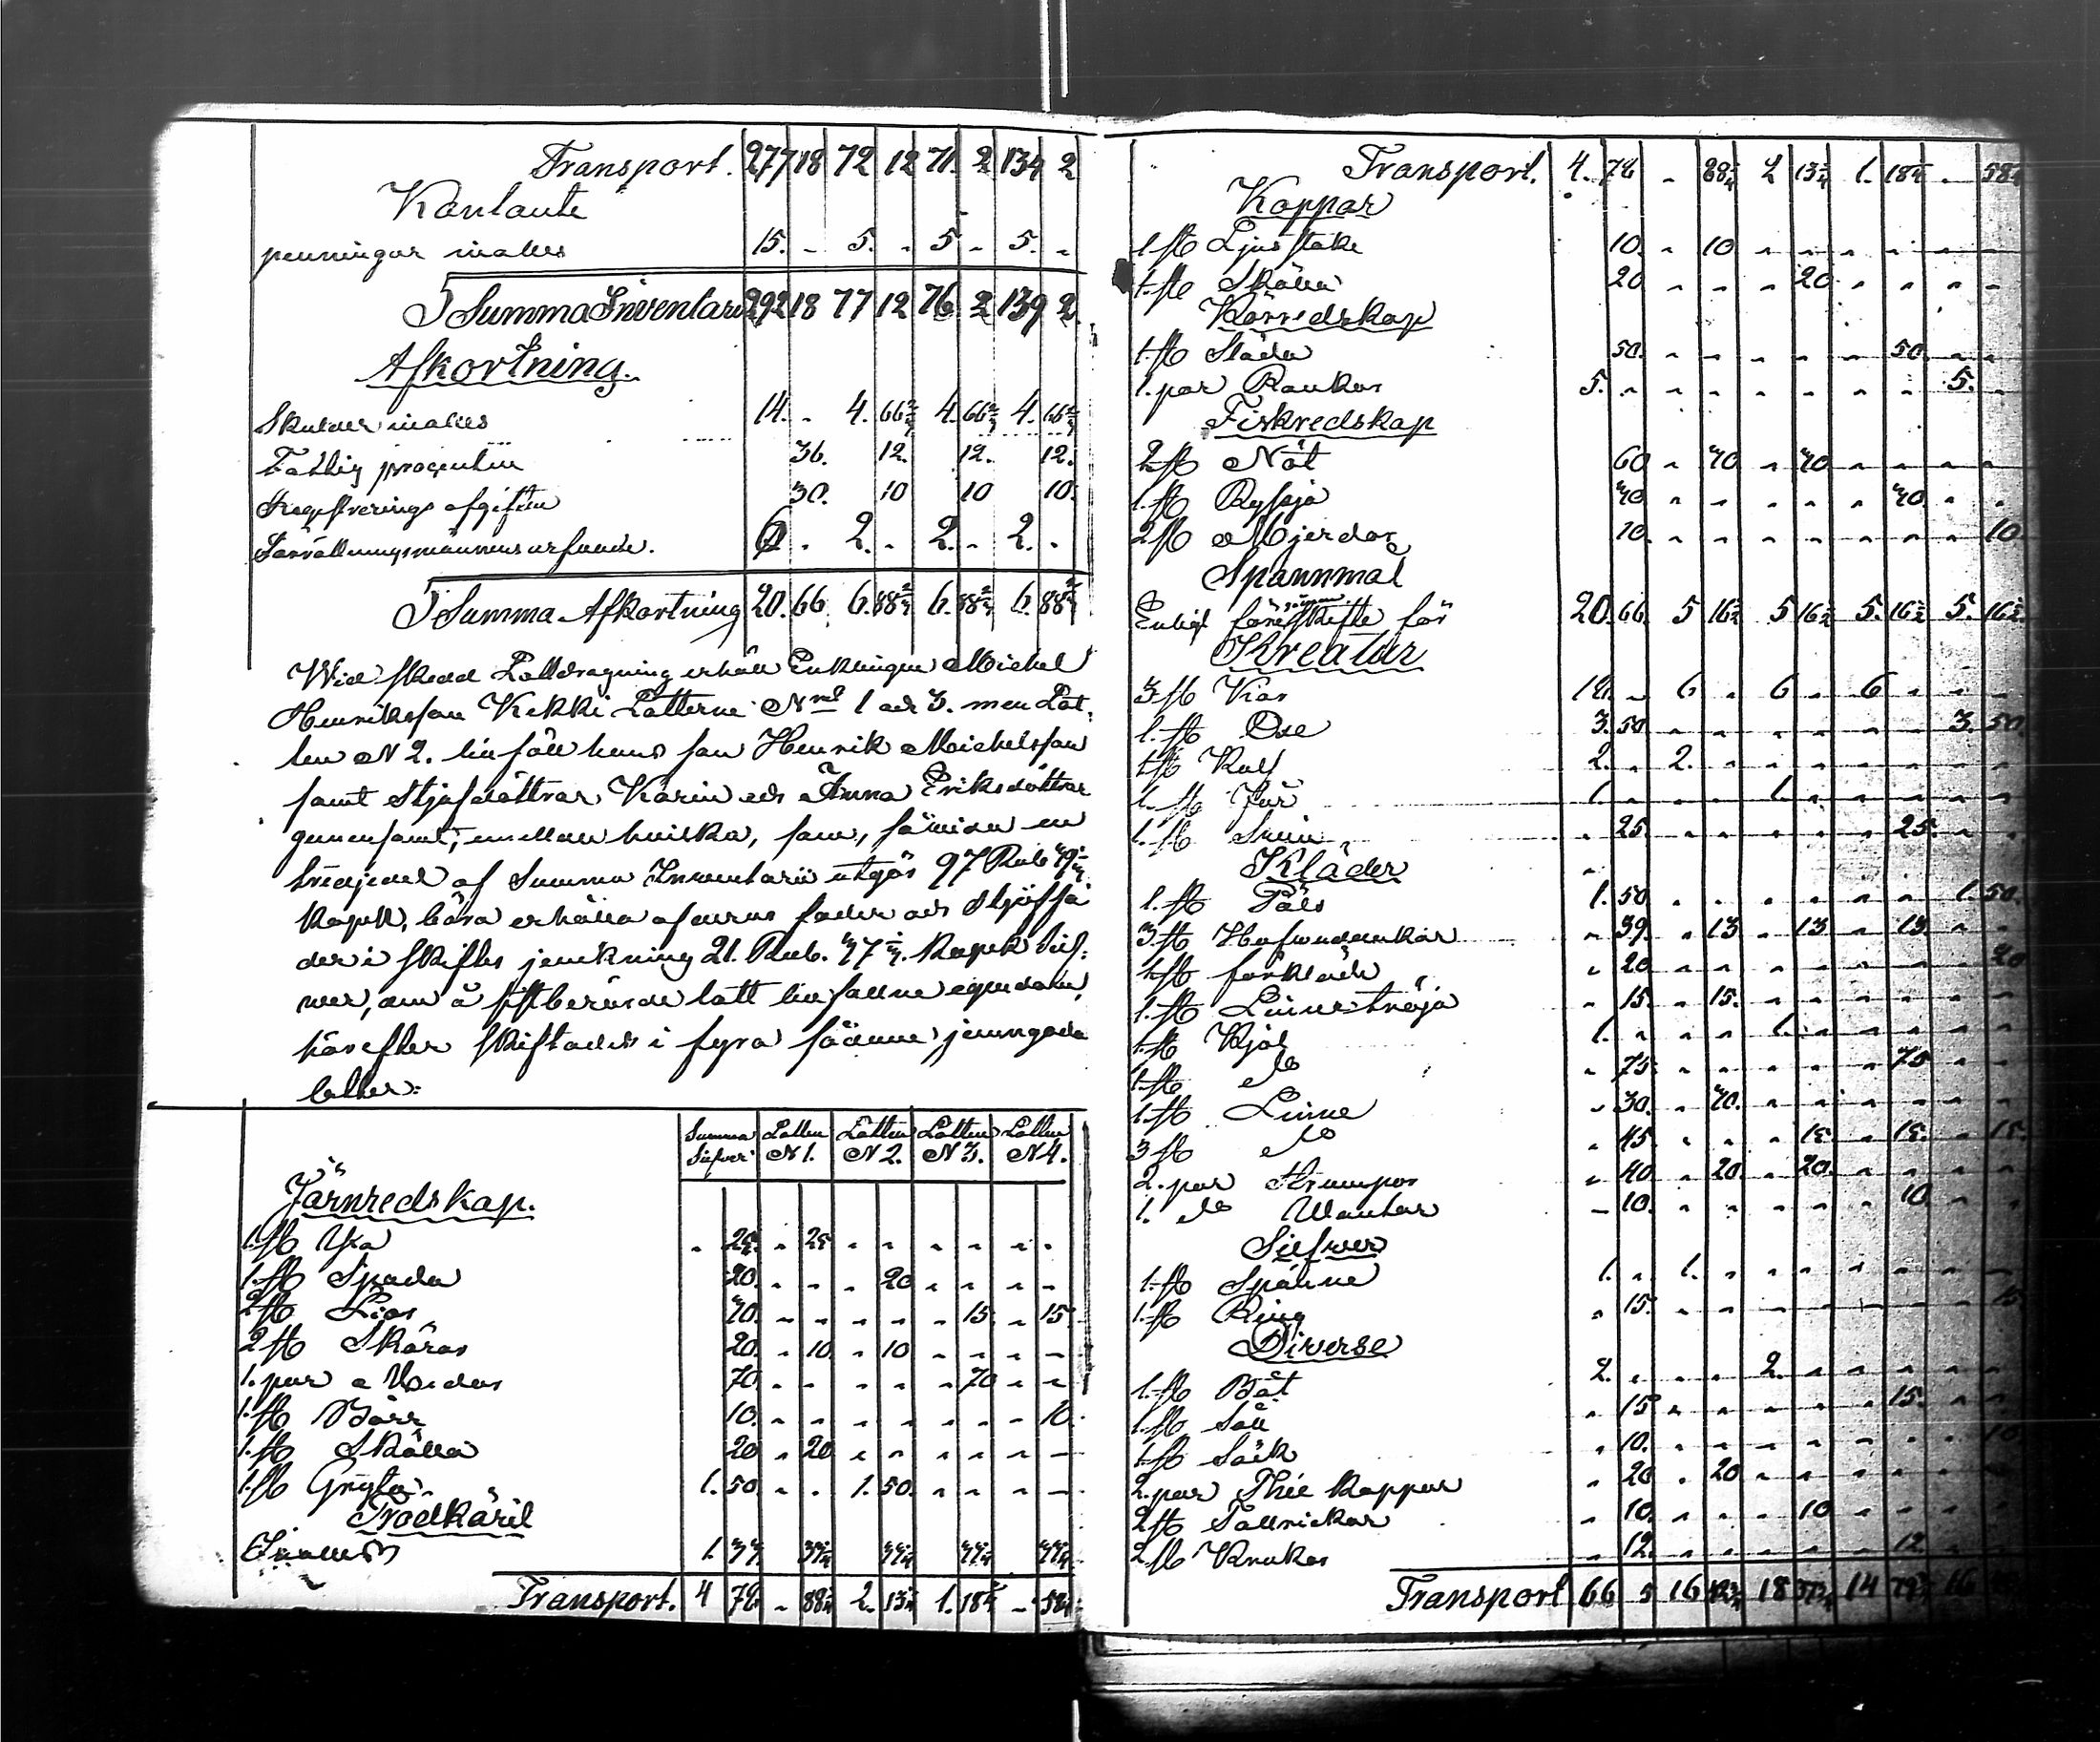 Transport. 277 18 72 12 71. 2 134 2
Kontante
penningar inalles 15. - 5. - 5 - 5. -
Summa Inventarii 292 18 77 12 76 2 139 2.
Afkortning.
Skulder inalles 14. - 4. 66 2/3 4. 66 2/3 4. 66 2/3
Fattig procenten 36. 12. 12. 12.
Registrerings afgiften 30. 10 10 10.
Förrättningsmännens arfvode. 6 - 2. - 2. - 2. -
Summa Afkortning 20. 66 6. 88 2/3 6. 88 2/3 6. 88 2/3
Wid skedd Lottdragning erhöll Enklingen Michel
Henriksson Kekki Lotterne N 1 och 3. men Lot-
ten N 2. tillföll hans son Henrik Michelsson
samt Stjufdöttrar Karin och Anna Eriksdöttrar
gemensamt, emellan hvilka, som,
tredjedel af Summa Inventarii utgör 97 Rub
Kopek, böra erhålla af deras fader och Stjuffa
der i skiftes jemkning 21. Rub. Kopek Silf-
wer, om å sistberörde lott tillfallne egendom,
härefter skiftades i fyra jemngoda
lotter:
Summa Silfver Lotten N 1. Lotten N 2. Lotten N 3. Lotten N 4.
Järnredskap.
1. st Yxa - 25. - 25 - - - - - -
1. st Spada 20. - - - 20 - - - -
2 st Liar - - - - - 15. - 15.
2 st Skäror 20. - 10. - 10 - - - -
1. par 70. - - - - - 70 - -
1. st Borr 10. - - - - - - - 10.
1. st Skålla 20 - 20 - - - - - -
1. st Gryta 1. 50. - - 1. 50. - - - -
Trädkäril
Inalles 1.
Transport. 4 - 88 2. 13 1. 18 - 58
Transport. 4. - 88 2 13 1. 18 - 58
Koppar
1. st Ljusstake 10. - 10 - - - - - -
1. st Skålla 20 - - - 20 - - - -
Körredskap
1. st Släda 50. - - - - - 50. - -
1. par Rankor 5. - - - - - - - 5. -
Fiskredskap
2 st Nöt - - - - - -
1. st Ryssja - - - - - - -
2 st Mjerdar 10. - - - - - - - 10
Spannmål
Enligt skifte för 20. 66. 5 16 1/2 5 16 1/2 5. 16 1/2 5. 16 1/2
Kreatur
3 st Kior 18. - 6 - 6 - 6 - - -
1. st Oxe 3. 50 - - - - - - 3. 50.
1. st Kalf 2. - 2. - - - - - - -
1. st Får 1. - - - 1. - - - - -
1. st Svin - 25. - - - - - 25. - -
Kläder
1. st Päls 1. 50 - - - - - - 1. 50.
3 st - 39. - 13 - 13 - 13. - -
1. st förkläde - 20 - - - - - - - 20
1. st Linnetröja - 15. - 15. - - - - - -
1. st Kjol 1. - - - 1. - - - - -
1. st do - 75. - - - - - 75 - -
1. st Linne - - - - - - - -
3 st do - 45. - - - 15. - 15. - 15.
2. par Strumpor - 40 - 20. - 20. - - - -
1. do Vantar - 10. - - - - - 10. - -
Silfwer
1. st Spänne 1. - 1. - - - - - - -
1. st Ring - 15. - - - - - - - 15
Diverse
1. st Båt 2. - - - 2. - - - - -
1. st Såll - 15 - - - - - 15. - -
1. st Säck - 10. - - - - - - - 10
2. par Thée Koppar - 20 - 20 - - - - - -
2 st Tallrickar - 10. - - - 10 - - - -
2 st Krukor - 12. - - - - - 12 - -
Transport 66 5 16 18 14 16